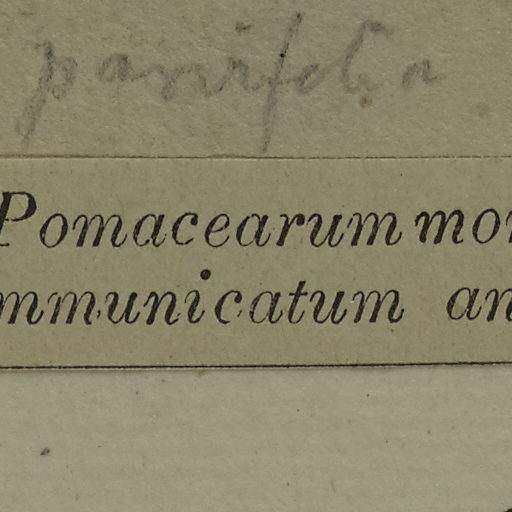 parvifolia
Pomacearum mon
mmunicatum an